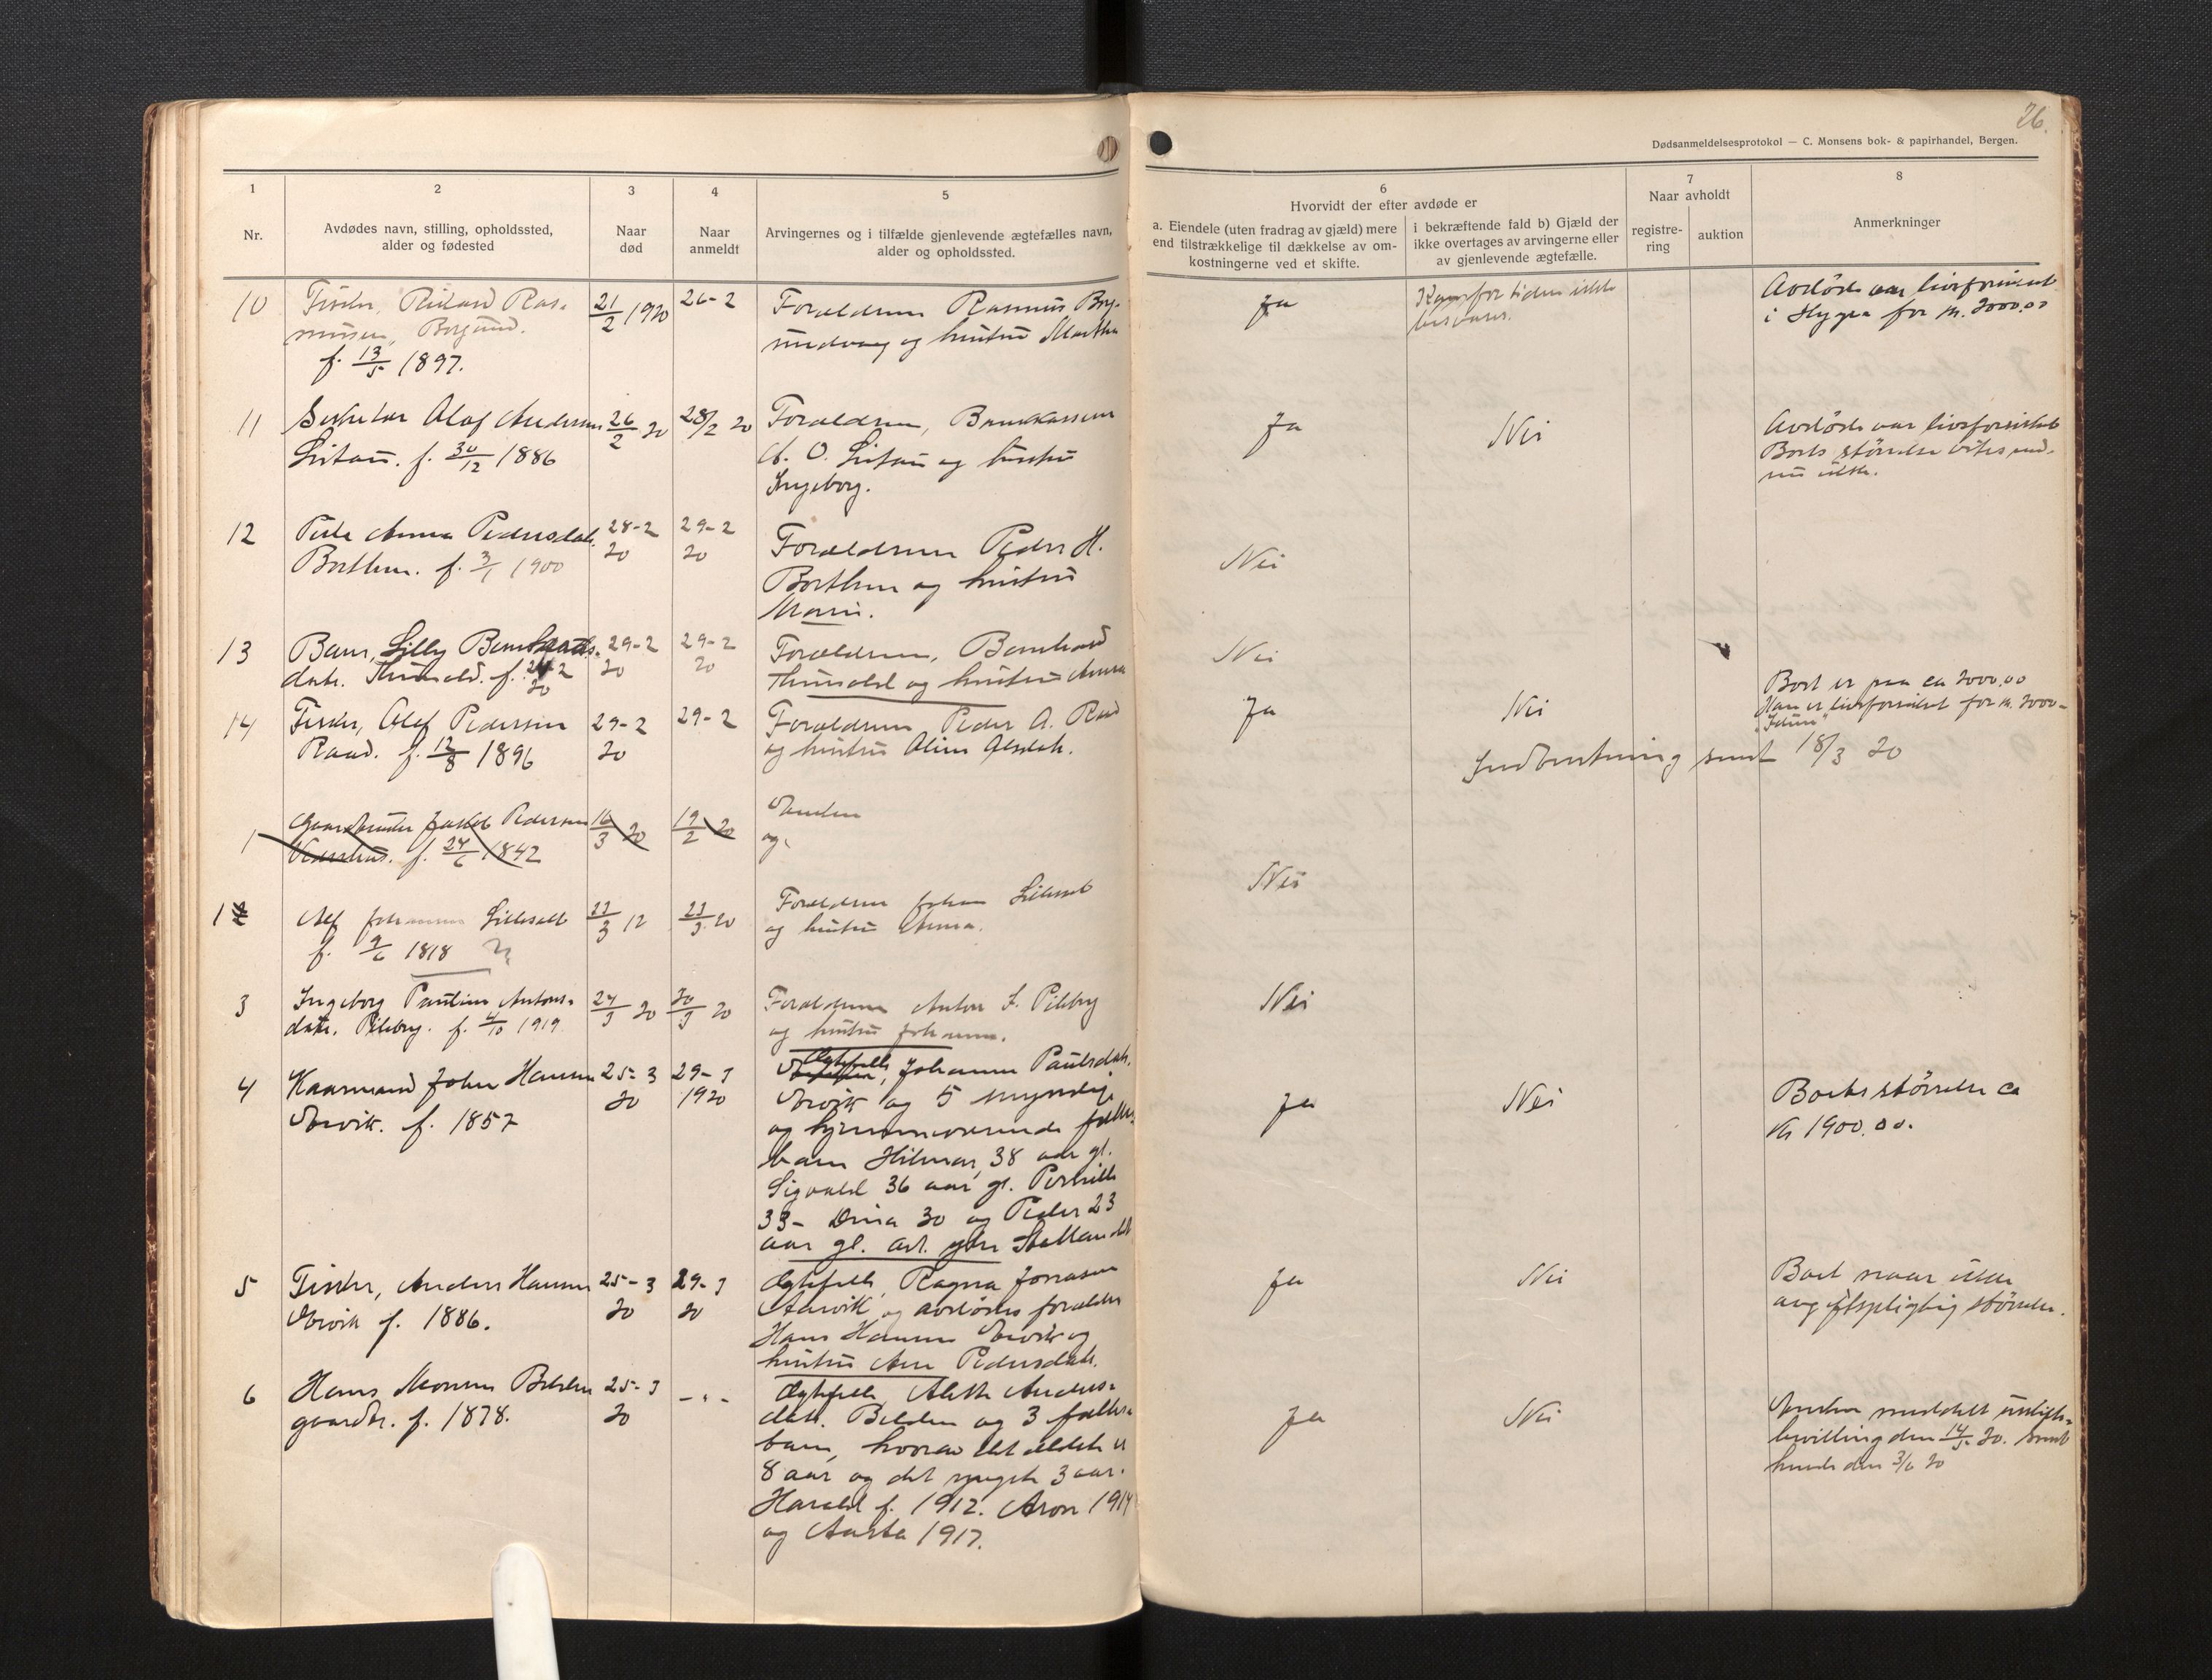 26.
Dødsanmeldelsesprotokol — C. Monsens bok- & papirhandel, Bergen.
1
Nr.
2
Avdødes navn, stilling, opholdssted,
alder og fødested
3
Naar
død
4
Naar
anmeldt
5
Arvingernes og i tilfælde gjenlevende ægtefælles navn,
alder og opholdssted.
6
Hvorvidt der efter avdøde er
a. Eiendele (uten fradrag av gjæld) mere
end tilstrækkelige til dækkelse av om-
kostningerne ved et skifte.
i bekræftende fald b) Gjæld der
ikke overtages av arvingerne eller
av gjenlevende ægtefælle.
7
Naar avholdt
registre-
ring
auktion
8
Anmerkninger
10
Fisker, Rikard Ras-
mussen,
f. 13/5 1897.
21/2 1920
26-2
Forældrene Rasmus
og hustru Martha
Ja
Kan for tiden ikke
besvares.
Avdøde var livsforsikret
i Hygea for kr. 2000.00
11
Sekretær Olaf Andersen
f. 30/12 1886
26/2 20
28/2 20
Forældrene, Bankkasserer
A. O. og hustru
Ingeborg.
Ja
Nei
Avdøde var livsforsikret
Boets størrelse vites end-
nu ikke.
12
Pike Anna Pedersdatr.
Borthen. f. 3/1 1900
28-2
20
29-2
20
Forældrene Peder H.
Borthen og hustru
Marie.
Nei
13
Barn, Lilly
datr. f. 2
20
29-2
20
29-2
20
Forældrene, Bernhard
og hustru Anna
Nei
14
Fisker, Olaf Pedersen
Raad. f. 12/8 1896
29-2
20
29-2
Forældrene Peder A. Raad
og hustru Oline Olsdatr.
Ja
Nei
Boet er paa ca 2000.00
Han er livsforsikret for kr. 2000-
"Idun"
Indberetning sendt 18/3 20
1
Gaardbruker Jakob Pedersen
f. 24/6 1842
16/3 20
19/2 20
Enken
og
1
Alf Johannesen
f. 9/6 1818
23/3 12
23/3 20
Forældrene Johan
og hustru Anna.
Nei
3
Ingeborg Pauline Antons-
datr. f. 4/10 1919
24/3 20
30/3 20
Forældrene Anton
og hustru Johanna.
Nei
4
Kaarmand John Hansen
Ervik. f. 1857
25-3
20
29-3
1920
Ægtefælle, Johanne Paulsdatr.
Ervik og 5 myndige
og hjemmeværende fælles-
barn Hilmar, 38 aar gl.
Sigvald 36 aar gl. Pernille
33- Dina 30 og Peder 23
aar gl.
Ja
Nei
Boets størrelse ca
kr 1900.00.
5
Fisker, Anders Hansen
Ervik f. 1886.
25-3
20
29-3
20
Ægtefælle, Ragna
og avdødes forældre
Hans Hansen Ervik og
hustru Ane Pedersdatr.
Ja
Nei
Boet naar ikke
avgiftspligtig størrelse.
6
Hans Monsen
gaardbr. f. 1878.
25-3
20
- " -
Ægtefælle, Alette Anders-
datr. og 3 fælles-
barn, hvorav det ældste er
8 aar og det yngste 3 aar.
Harald f. 1912. Aron 1914
og Aasta 1917.
Ja
Nei
Enken meddelt uskifte-
bevilling den 14/5 20. Sendt
hende den 3/6 20